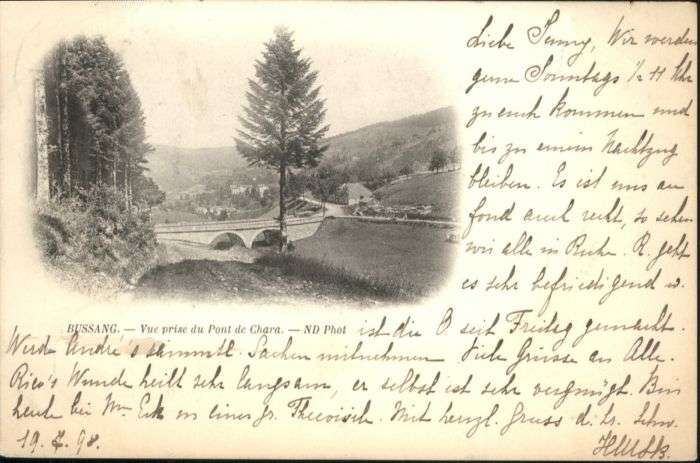 Liebe Jenny, Wir werden
gerne Sonntags 1/2 11 Uhr
zu euch kommen und
bis zu einem Nachtzug
bleiben. Es ist uns au
fond auch recht, so sehen
wir alle in Ruhe. R. geht
es sehr befriedigend u.
BUSSANG. — Vue prise du Pont de Chara. — ND Phot
ist die B seit Freitag gemacht.
Werde André's sämmtl. Sachen mitnehmen Viele Grüsse an Alle.
Rico's Wunde heilt sehr langsam, er selbst ist sehr vergnügt. Bin
heute bei Mme Eck in einer gr. Mit herzl. Gruss d. tr. Schw.
19. 98.